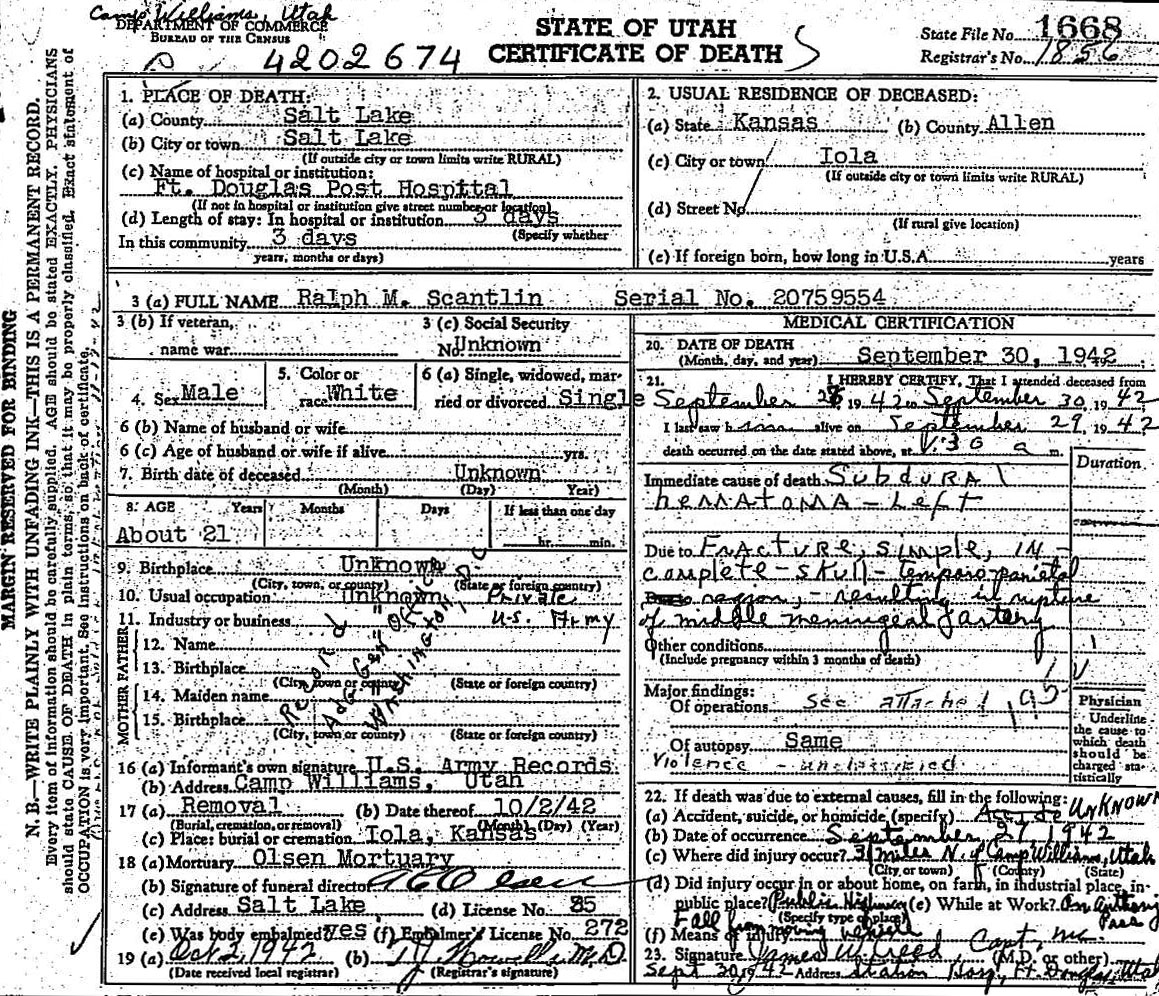 Camp Williams, Utah
DEPARTMENT OF COMMERCE
BUREAU OF THE CENSUS
4202674
STATE OF UTAH
CERTIFICATE OF DEATH
State File No. 1668
Registrar's No. 1856
MARGIN RESERVED FOR BINDING
N. B.—WRITE PLAINLY WITH UNFADING INK—THIS IS A PERMANENT RECORD.
Every item of information should be carefully supplied. AGE should be stated EXACTLY. PHYSICIANS
should state CAUSE OF DEATH in plain terms, so that it may be properly classified. Exact statement of
OCCUPATION is very important. See instructions on back of certificate.
1. PLACE OF DEATH:
(a) County Salt Lake
(b) City or town Salt Lake
(If outside city or town limits write RURAL)
(c) Name of hospital or institution:
Ft. Douglas Post Hospital
(If not in hospital or institution give street number or location)
(d) Length of stay: In hospital or institution 3 days
(Specify whether
In this community 3 days
years, months or days)
2. USUAL RESIDENCE OF DECEASED:
(a) State Kansas (b) County Allen
(c) City or town Iola
(If outside city or town limits write RURAL)
(d) Street No.
(If rural give location)
(e) If foreign born, how long in U.S.A. years
3 (a) FULL NAME Ralph M. Scantlin Serial No. 20759554
3 (b) If veteran,
name war
3 (c) Social Security
No. Unknown
4. Sex Male
5. Color or
race White
6 (a) Single, widowed, mar-
ried or divorced Single
6 (b) Name of husband or wife
6 (c) Age of husband or wife if alive yrs.
7. Birth date of deceased Unknown
(Month) (Day) Year)
8. AGE Years Months Days If less than one day
About 21 hr. min.
9. Birthplace Unknown
(City, town, or county) (State or foreign country)
10. Usual occupation Unknown Private
11. Industry or business " U.S. Army
FATHER
12. Name
13. Birthplace
(City, town or county) (State or foreign country)
MOTHER
14. Maiden name
15. Birthplace
(City, town or county) (State or foreign country)
Record
Adg Gen Office
Washington, D.C.
16 (a) Informant's own signature U.S. Army Records
(b) Address Camp Williams, Utah
17 (a) Removal (b) Date thereof 10/2/42
(Burial, cremation, or removal) (Month) (Day) (Year)
(c) Place: burial or cremation Iola, Kansas
18 (a) Mortuary Olsen Mortuary
(b) Signature of funeral director Olsen
(c) Address Salt Lake (d) License No. 85
(e) Was body embalmed? yes (f) Embalmer's License No. 272
19 (a) Oct 2, 1942 (b) M.D.
(Date received local registrar) (Registrar's signature)
MEDICAL CERTIFICATION
20. DATE OF DEATH
(Month, day, and year) September 30, 1942
21. I HEREBY CERTIFY, That I attended deceased from
September 28, 1942 to September 30, 1942
I last saw him alive on September 29, 1942
death occurred on the date stated above, at 1:30 a m.
Duration
Immediate cause of death Subdural
hematoma - Left
Due to Fracture, simple, in-
complete - skull - temporo parietal
region, - resulting in rupture
of middle meningeal artery
Other conditions
(Include pregnancy within 3 months of death)
Major findings:
Of operations See attached 195
Of autopsy Same
Violence - unclassified
Physician
Underline
the cause to
which death
should be
charged sta-
tistically
22. If death was due to external causes, fill in the following:
(a) Accident, suicide, or homicide (specify) Accide UNKNOWN
(b) Date of occurrence September 27 1942
(c) Where did injury occur? 3 miles N. of Camp Williams, Utah
(City or town) (County) (State)
(d) Did injury occur in or about home, on farm, in industrial place, in-
public place? Public Highway (e) While at Work? On Authority
Pass
(Specify type of place)
(f) Means of injury Fall from moving vehicle
23. Signature James Capt, MC.
(M.D. or other)
Sept 30, 1942 Address Station Hosp, Ft. Douglas, Utah